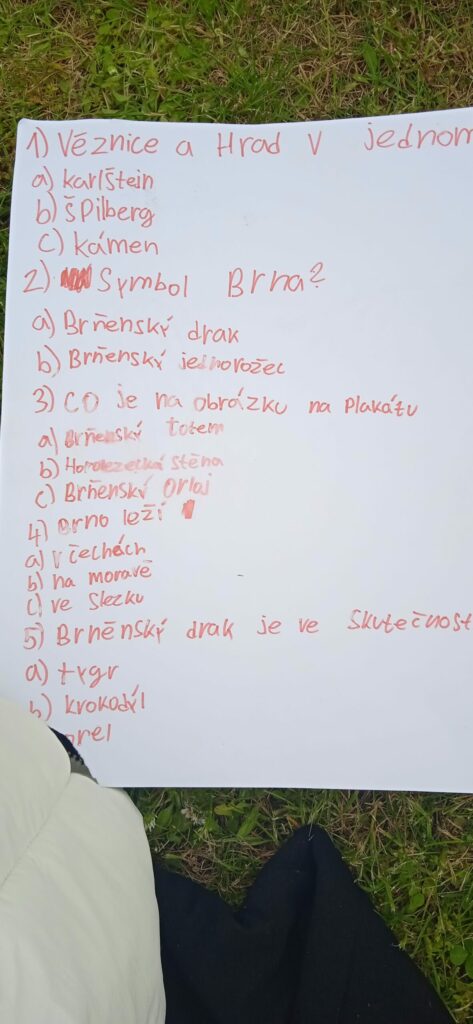 1) Věznice a Hrad v jednom
a) karlštein
b) Špilberg
c) kámen
2) Symbol Brna?
a) Brňenský drak
b) Brňenský jednorožec
3) CO je na obrázku na Plakátu
a) Brňenský totem
b) Horolezecká stěna
c) Brňenský Orloj
4) Brno leží
a) v čechách
b) na moravě
c) ve Slezku
5) Brněnský drak je ve Skutečnost
a) tygr
b) krokodýl
orel